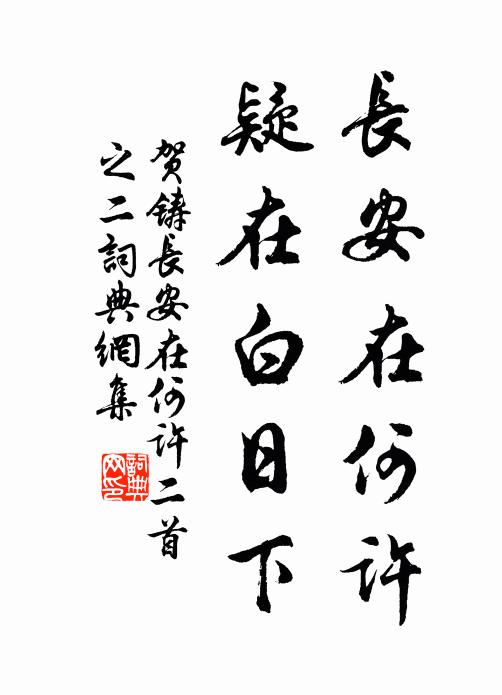 長安在何許
疑在白日下
贺鑄長安在何许二首
之二詞典網集
詞典网印